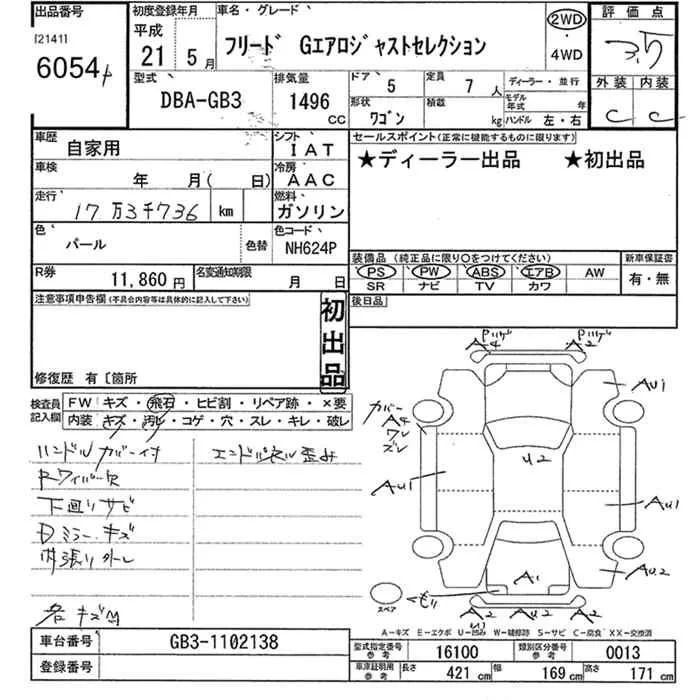 出品番号
[2141]
6054
初度登録年月
平成
21 5月
車名・グレード
フリード Gエアロジャストセレクション
2WD
・
4WD
評価点
3.5
外装 内装
C C
型式
DBA-GB3
排気量
1496
CC
ドア 5
定員 7 人
形状 ワゴン
積載 kg
ディーラー・並行
モデル年式 年
ハンドル 左・右
車歴 自家用
シフト IAT
車検 年 月( 日)
冷房 AAC
走行 17万3千736 km
燃料 ガソリン
色 パール
色替
色コード NH624P
R券 11,860円
名変通知期限 月 日
セールスポイント(正常に機能するものに限ります)
★ディーラー出品 ★初出品
装備品 (純正品に限り○をつけてください)
PS PW ABS エアB AW
SR ナビ TV カワ
新車保証書
有・無
後日品
注意事項申告欄(不具合内容等は具体的に記入して下さい)
初出品
修復歴 有〔箇所
検査員記入欄
FW キズ・飛石・ヒビ割・リペア跡・×要
内装 キズ・汚レ・コゲ・穴・スレ・キレ・破レ
ハンドルカバー付
エンドパネル歪み
Rワイパー欠
下廻りサビ
Dミラーキズ
内張り外レ
キズ凹
A4
A2
AU1
カバー
A4
ワレ
ズレ
U2
AU1
AU1
A1
AU2
スペア
A2 AU2 A2
A-キズ E-エクボ U-凹み W-補修跡 S-サビ C-腐食 XX-交換済
車台番号 GB3-1102138
登録番号
型式指定番号 参考 16100
類別区分番号 参考 0013
車庫証明用 参考 長さ 421 cm 幅 169 cm 高さ 171 cm